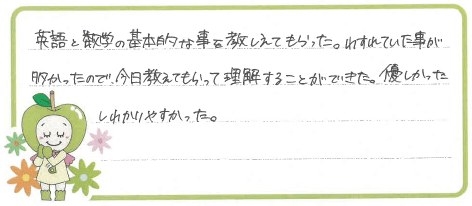 英語と数学の基本的な事を教しえてもらった。わすれていた事が
多かったので、今日教えてもらって理解することができた。優しかった
しわかりやすかった。